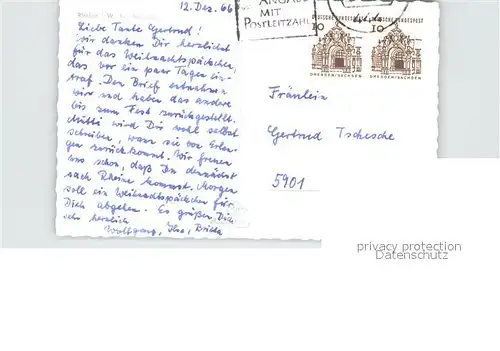 12. Dez. 66
Liebe Tante Gertrud!
Wir danken Dir herzlichst
für das Weihnachtspäckchen,
das vor ein paar Tagen ein-
traf. Den Brief entnahmen
wir und haben das andere
bis zum Fest zurückgestellt.
Mutti wird Dir wohl selbst
schreiben, wann sie von Erlan-
gen zurückkommt. Wir freuen
uns schon, daß Du demnächst
nach Rheine kommst. Morgen
soll ein Weihnachtspäckchen für
Dich abgehen. Es grüßen Dich
herzlich
Wolfgang, Ilse,
ANGABE
MIT
POSTLEITZAHL
10
10
DEUTSCHE BUNDESPOST
DEUTSCHE BUNDESPOST
DRESDEN/SACHSEN
DRESDEN/SACHSEN
Fräulein
Gertrud Tschesche
5901
privacy protection
Datenschutz